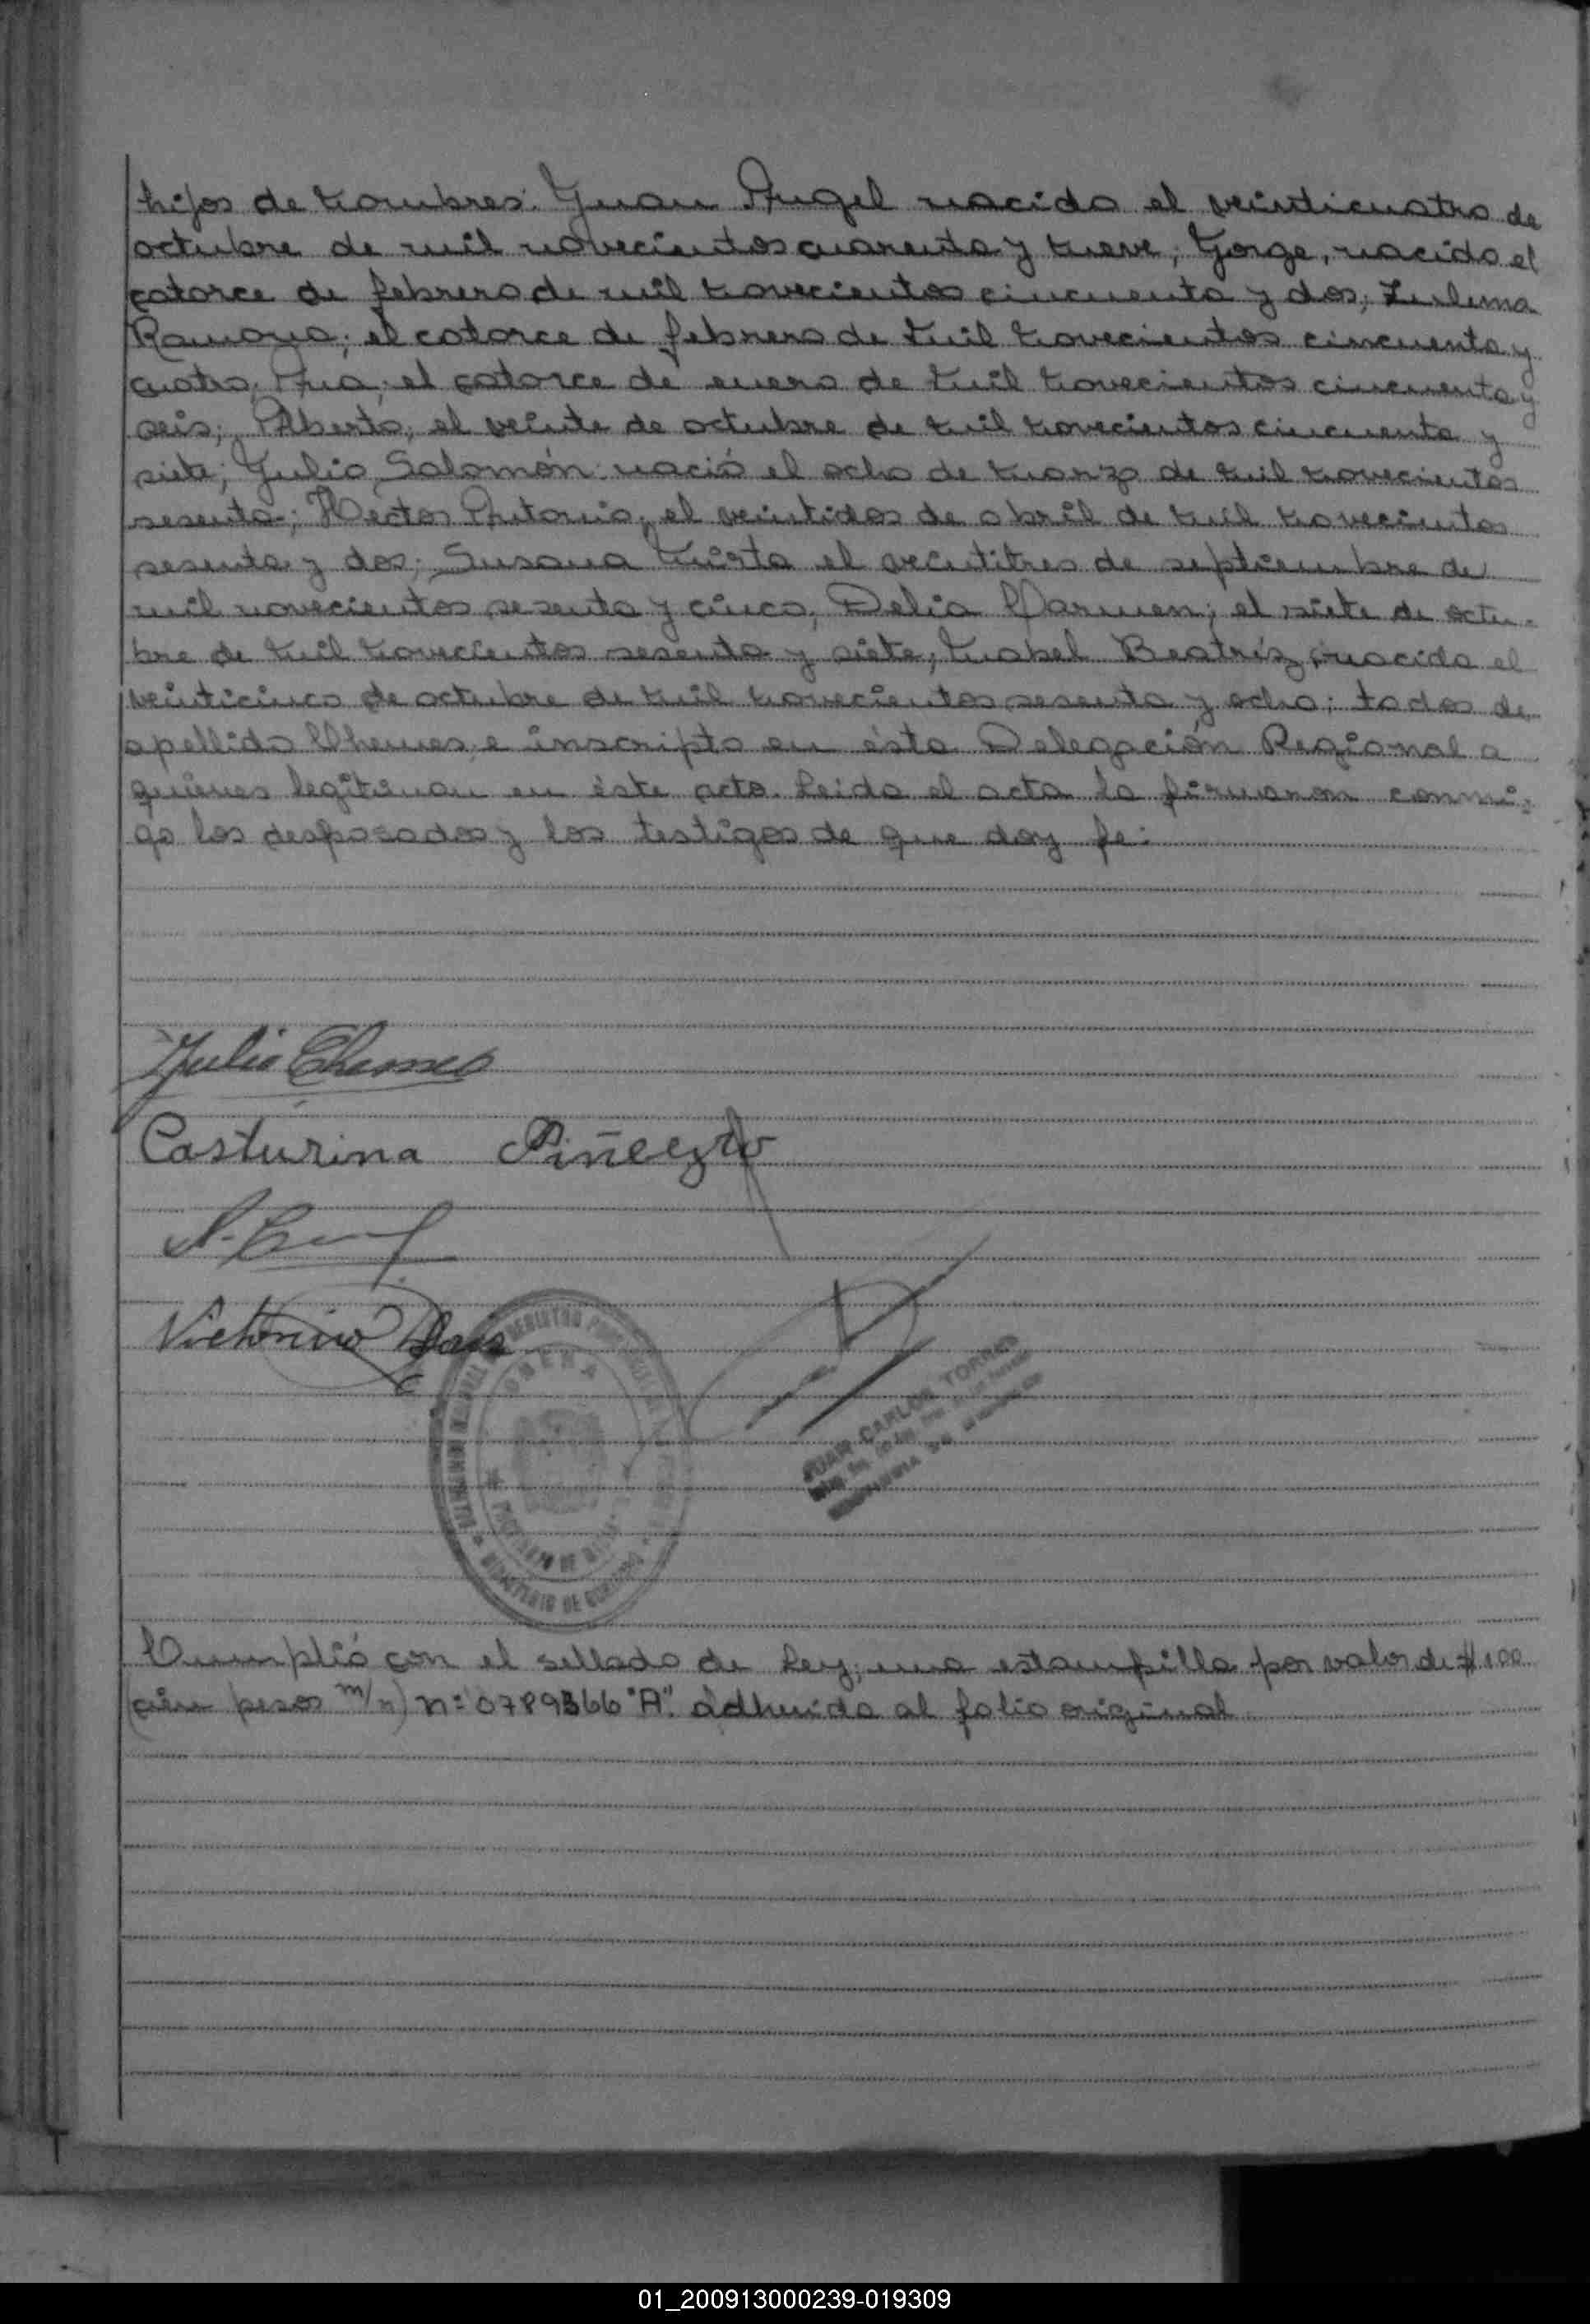 hijos de nombres: Juan Angel nacido el veinticuatro de
octubre de mil novecientos cuarenta y nueve; Jorge, nacido el
catorce de febrero de mil novecientos cincuenta y dos; Zulema
Ramona; el catorce de febrero de mil novecientos cincuenta y
cuatro; Ana; el catorce de enero de mil novecientos cincuenta y
seis; Alberto; el veinte de octubre de mil novecientos cincuenta y
siete; Julio Salomón nació el ocho de marzo de mil novecientos
sesenta; Hector Antonio; el veintidos de abril de mil novecientos
sesenta y dos; Susana Mirta el veintitres de septiembre de
mil novecientos sesenta y cinco; Delia Carmen; el siete de octu-
bre de mil novecientos sesenta y siete; Mabel Beatríz; nacida el
veinticinco de octubre de mil novecientos sesenta y ocho; todos de
apellido Chemes e inscripto en ésta Delegación Regional a
quienes legitiman en éste acto. Leida el acta la firmaron conmi-
go los desposados y los testigos de que doy fe:
Julio Chemes
Casturina Piñeyro
Victorino
JUAN CARLOS TORRES
MINISTERIO DE GOBIERNO
Cumplió con el sellado de Ley; una estampilla por valor de $ 100
(cien pesos m/n) n= 0789366 "A". adherida al folio original